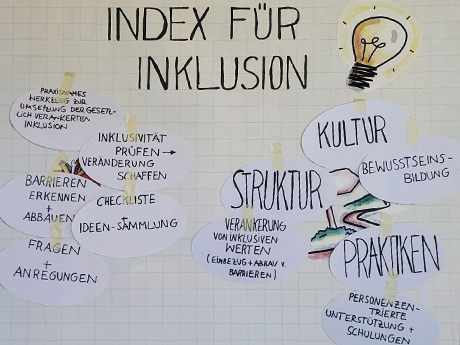 INDEX FÜR
INKLUSION
PRAXISNAHES
WERKZEUG ZUR
UMSETZUNG DER GESETZ-
LICH VERANKERTEN
INKLUSION
INKLUSIVITÄT
PRÜFEN →
VERÄNDERUNG
SCHAFFEN
BARRIEREN
ERKENNEN
+
ABBAUEN
CHECKLISTE
+
IDEEN-SAMMLUNG
FRAGEN
+
ANREGUNGEN
KULTUR
BEWUSSTSEINS-
BILDUNG
STRUKTUR
VERANKERUNG
VON INKLUSIVEN
WERTEN
(EINBEZUG + ABBAU V.
BARRIEREN)
PRAKTIKEN
PERSONENZEN-
TRIERTE
UNTERSTÜTZUNG +
SCHULUNGEN